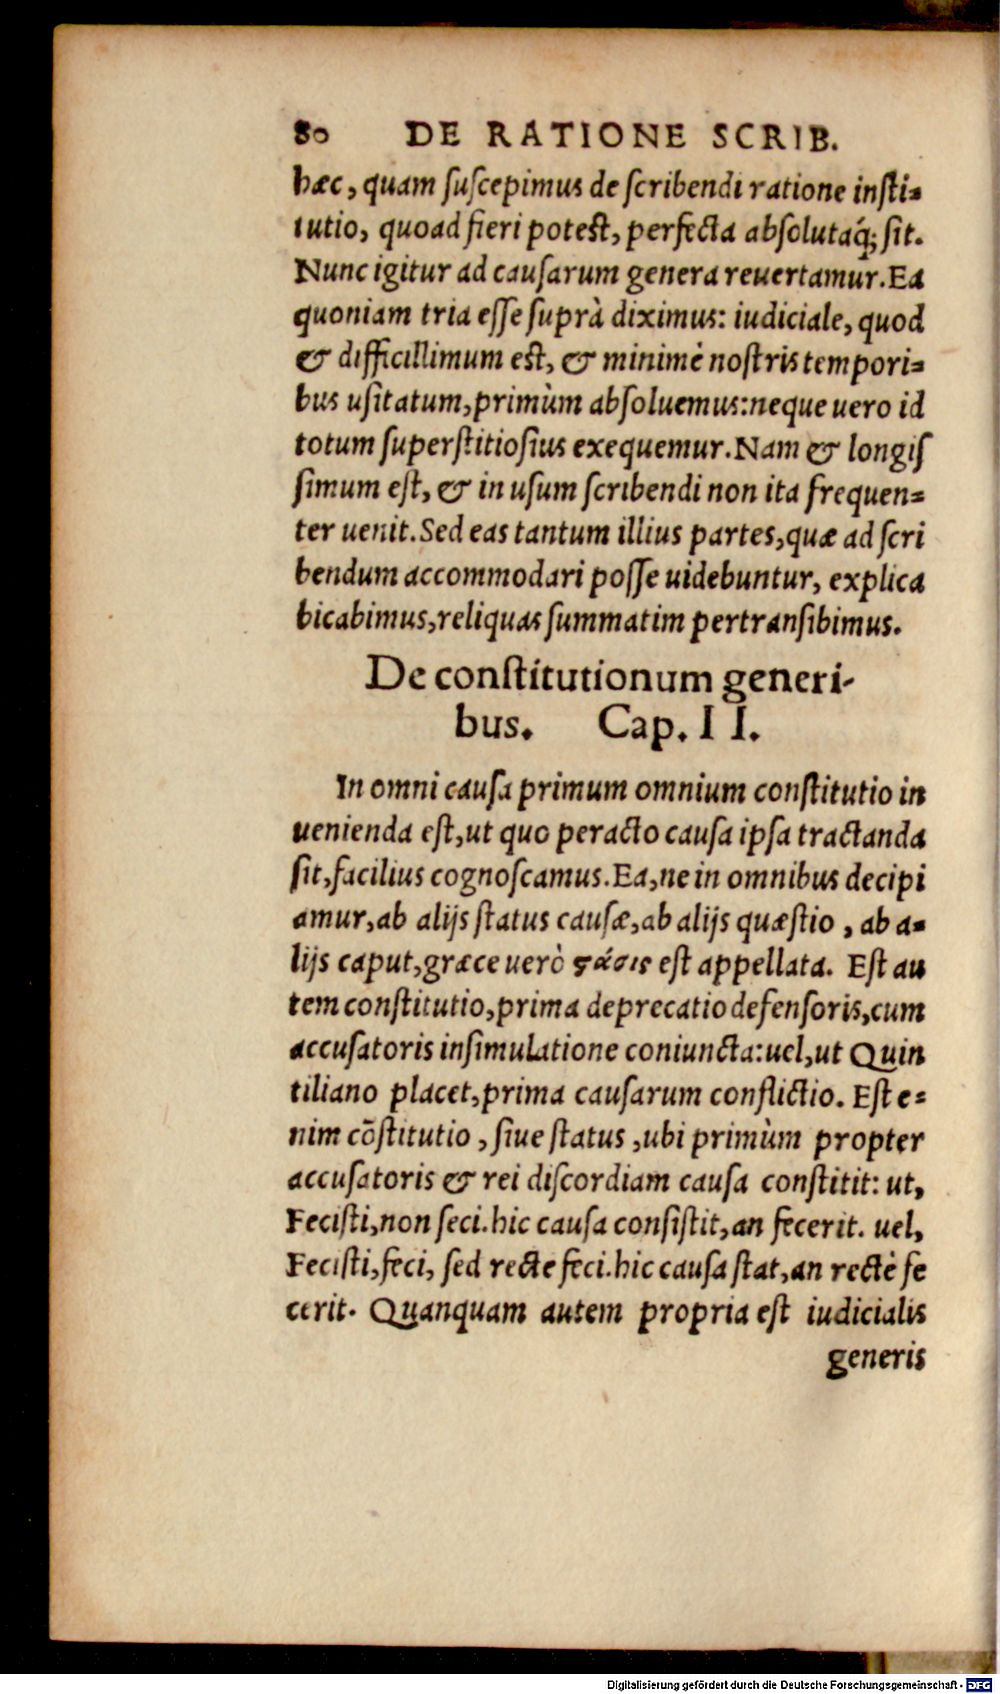 80 DE RATIONE SCRIB.
hæc, quam ſuſcepimus de ſcribendi ratione inſti=
tutio, quoad fieri poteſt, perfecta abſolutaq́; ſit.
Nunc igitur ad cauſarum genera reuertamur. Ea
quoniam tria eſſe ſuprà diximus: iudiciale, quod
& difficillimum eſt, & minimè noſtris tempori=
bus uſitatum, primùm abſoluemus: neque uero id
totum ſuperſtitioſius exequemur. Nam & longiſ
ſimum eſt, & in uſum ſcribendi non ita frequen=
ter uenit. Sed eas tantum illius partes, quæ ad ſcri
bendum accommodari poſſe uidebuntur, explica
bicabimus, reliquas ſummatim pertranſibimus.
De conſtitutionum generi-
bus. Cap. II.
In omni cauſa primum omnium conſtitutio in
uenienda eſt, ut quo peracto cauſa ipſa tractanda
ſit, facilius cognoſcamus. Ea, ne in omnibus decipi
amur, ab alijs ſtatus cauſæ, ab alijs quæſtio, ab a=
lijs caput, græce uerò ϛάσις eſt appellata. Eſt au
tem conſtitutio, prima deprecatio defenſoris, cum
accuſatoris inſimulatione coniuncta: uel, ut Quin
tiliano placet, prima cauſarum conflictio. Eſt e=
nim cõſtitutio, ſiue ſtatus, ubi primùm propter
accuſatoris & rei diſcordiam cauſa conſtitit: ut,
Feciſti, non feci. hic cauſa conſiſtit, an fecerit. uel,
Feciſti, feci, ſed recte feci. hic cauſa ſtat, an rectè fe
cerit. Quanquam autem propria eſt iudicialis
generis
Digitalisierung gefördert durch die Deutsche Forschungsgemeinschaft - DFG